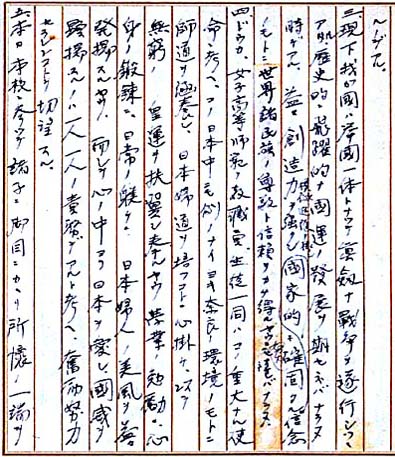 ルーデアル。
三、現下我ガ國ハ挙國一体トナツテ真剣ナ戦争ヲ遂行シツヽ
アリ、歴史的ナ飛躍的ナ國運ノ発展ヲ期セネバナラヌ
時デアル。益々創造力ヲ強クシ國家的ナ確固タル信念
ノモトニ世界諸民族ノ尊敬ト信頼ヲカチ得ナケレバナラヌ
四、ドウカ、女子高等師範ノ教職員、生徒一同ハコノ重大ナル使
命ヲ考ヘ、コノ日本中ニモ例ノナイヨキ奈良ノ環境ノモトニ
師道ヲ涵養シ、日本婦道ヲ培フコトニ心掛ケ、以テ
無窮ノ皇運ヲ扶翼シ奉ルヤウ、学業ニ勉励シ、心
身ノ鍛錬ニ、日常ノ躾ニ、日本婦人ノ美風ヲ益々
発揚スルヤウ、而シテ心ノ中ヨリ日本ヲ愛シ國威ヲ
発揚スルノハ一人一人ノ責務デアルト考ヘ、奮励努力
セラレンコトヲ切望スル。
五、本日本校ニ参リ諸子ニオ目ニカカリ所懐ノ一端ヲ